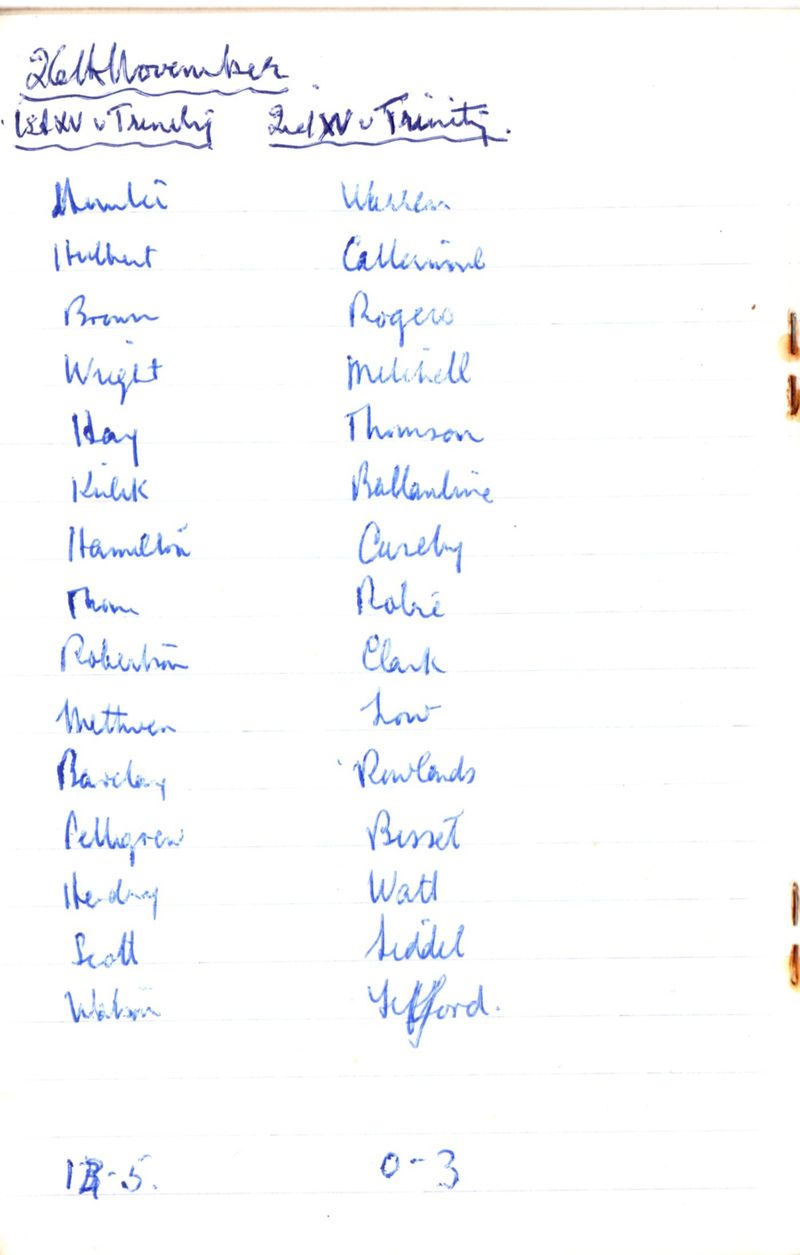 26th November
1st XV v Trinity 2nd XV v Trinity.
Warren
Hulbert
Brown Rogers
Wright Mitchell
Hay Thomson
Ballantine
Hamilton
Thom Robbie
Robertson Clark
Methven Low
Barclay Rowlands
Pettigrew Bisset
Hendry Watt
Scott Liddel
Watson
0-3